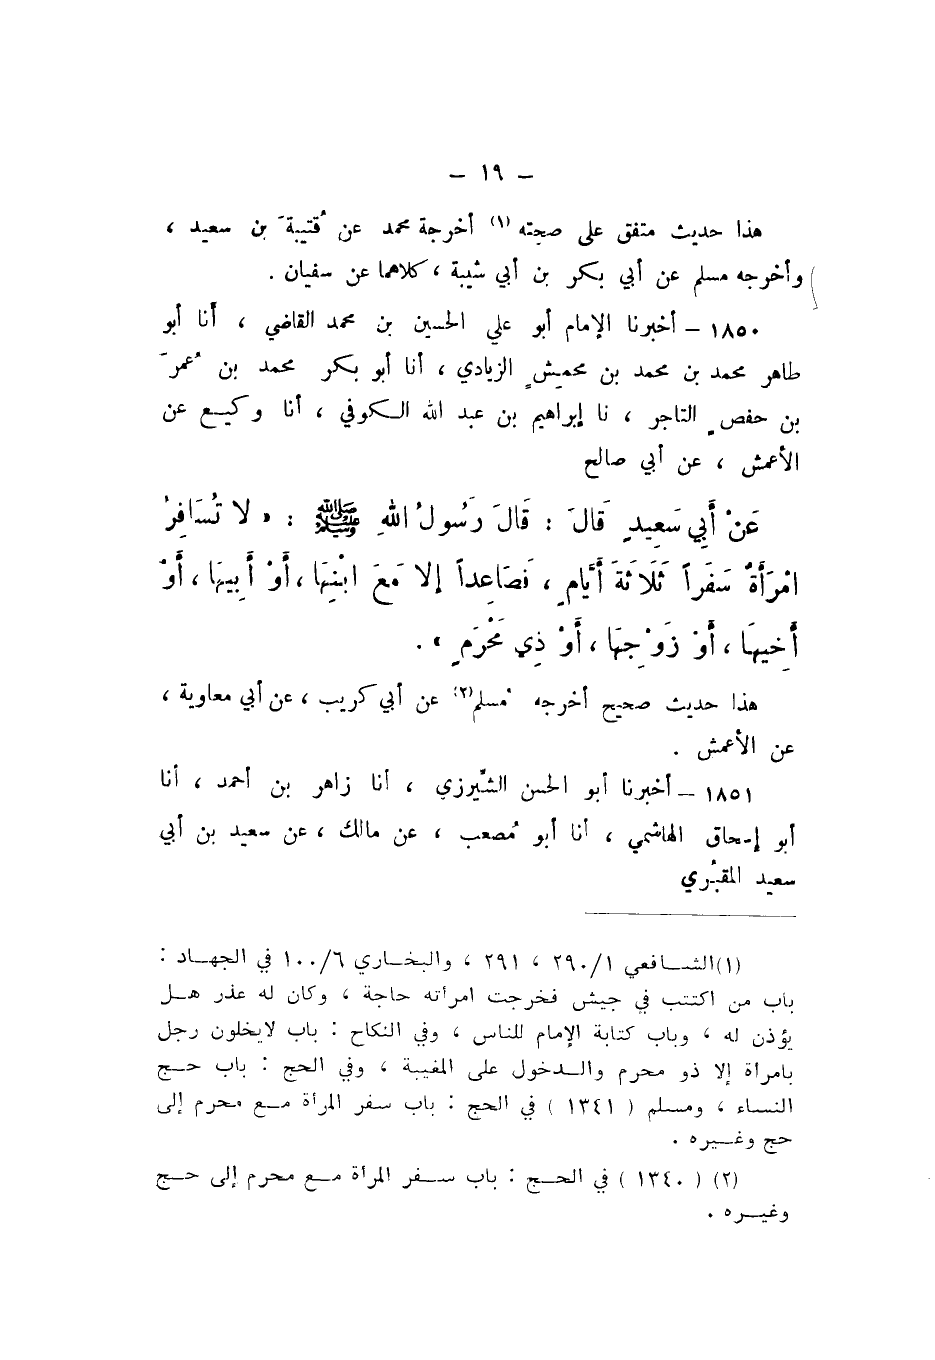 – ١٩ –
هذا حديث متفق على صحته (١) أخرجة محمد عن قُتيبةَ بن سعيد ،
وأخرجه مسلم عن أبي بكر بن أبي شيبة ، كلاهما عن سفيان .
١٨٥٠ – أخبرنا الإمام أبو علي الحسين بن محمد القاضي ، أنا أبو
طاهر محمد بن محمد بن محمِشٍ الزيادي ، أنا أبو بكر محمد بن عُمرَ
بن حفصٍ التاجر ، نا إبراهيم بن عبد الله الكوفي ، أنا وكيع عن
الأعمش ، عن أبي صالح
عَنْ أَبِي سَعِيدٍ قَالَ : قَالَ رَسُولُ اللهِ ﷺ : « لا تُسَافِرُ
امْرَأَةٌ سَفَراً ثَلَاثَةَ أَيَّامٍ ، فَصَاعِداً إلا مَعَ ابْنِهَا ، أَوْ أَبِيهَا ، أَوْ
أَخِيهَا ، أَوْ زَوْجِهَا ، أَوْ ذِي مَحْرَمٍ » .
هذا حديث صحيح أخرجه مُسلم (٢) عن أبي كريب ، عن أبي معاوية ،
عن الأعمش .
١٨٥١ – أخبرنا أبو الحسن الشِّيرزي ، أنا زاهر بن أحمد ، أنا
أبو إسحاق الهاشمي ، أنا أبو مُصعب ، عن مالك ، عن سعيد بن أبي
سعيد المقبُري
(١) الشافعي ٢٩٠/١ ، ٢٩١ ، والبخاري ١٠٠/٦ في الجهاد :
باب من اكتتب في جيش فخرجت امرأته حاجة ، وكان له عذر هل
يؤذن له ، وباب كتابة الإمام للناس ، وفي النكاح : باب لايخلون رجل
بامرأة إلا ذو محرم والدخول على المغيبة ، وفي الحج : باب حج
النساء ، ومسلم ( ١٣٤١ ) في الحج : باب سفر المرأة مع محرم إلى
حج وغيره .
(٢) ( ١٣٤٠ ) في الحج : باب سفر المرأة مع محرم إلى حج
وغيره .